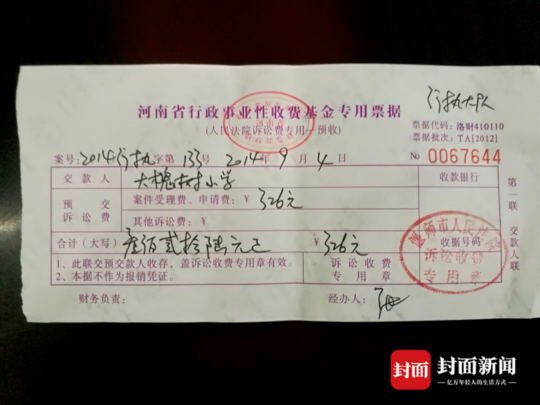 行执大队
河南省行政事业性收费基金专用票据
(人民法院诉讼费专用—预收)
票据代码：洛财410110
票据批次：TA[2012]
案号：2014行执字第133号 2014年9月4日
№ 0067644
交款人 大槐树小学 收款银行
预交诉讼费 案件受理费、申请费：¥326元
其他诉讼费：¥
合计（大写）叁佰贰拾陆元正 ¥326元 收据号码
1、此联交预交款人收存，盖诉讼收费专用章有效。
2、本据不作为报销凭证。
诉讼收费专用章
第一联 交款人联
财务负责： 经办人：
偃师市人民法院
诉讼收费
专用章
封面 封面新闻
亿万年轻人的生活方式